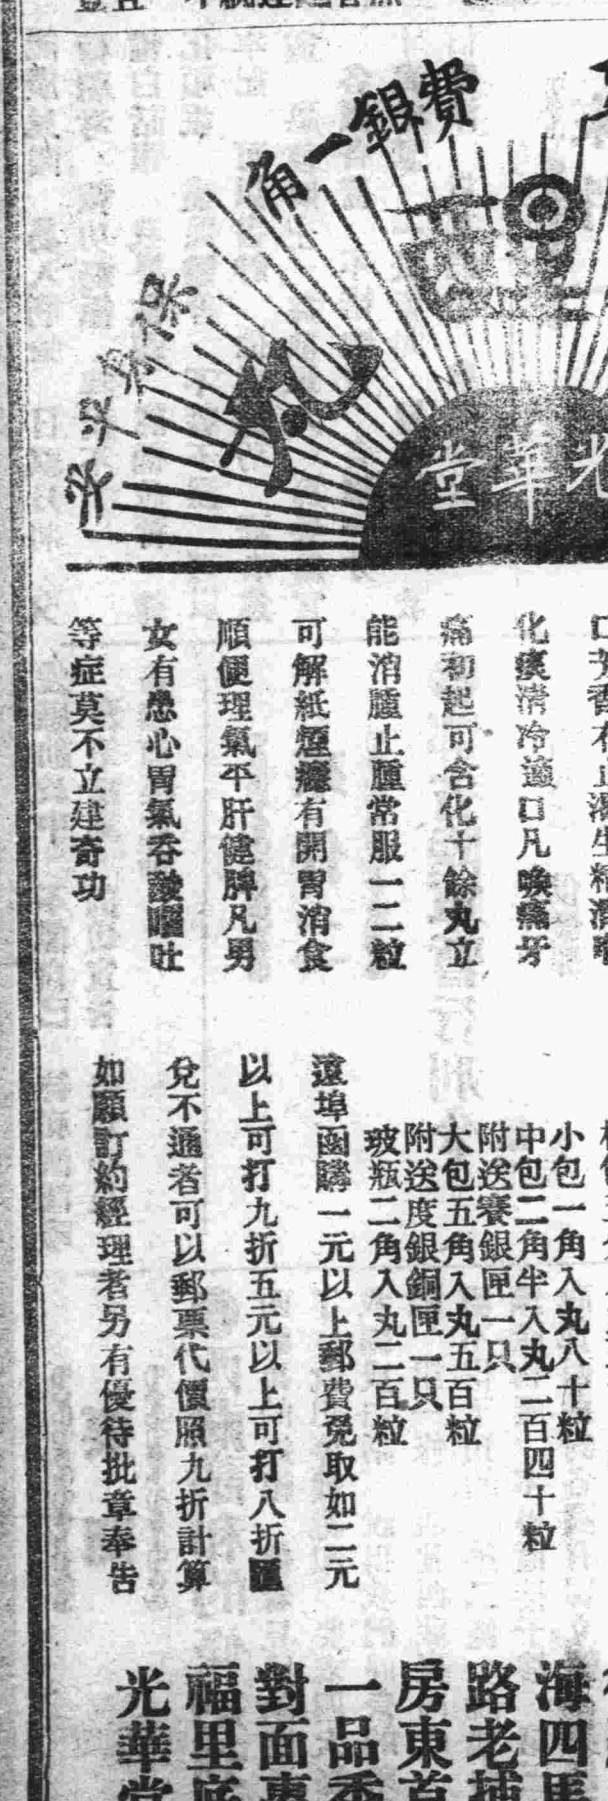 費銀一角
保君平安
丸
光華堂
化痰清冷適口凡喉痛牙
痛初起可含化十餘丸立
能消腫止腫常服一二粒
可解紙煙癮有開胃消食
順便理氣平肝健脾凡男
女有患心胃氣吞酸嘔吐
等症莫不立建奇功
小包一角入丸八十粒
中包二角半入丸二百四十粒
附送賽銀匣一只
大包五角入丸五百粒
附送度銀銅匣一只
玻瓶二角入丸二百粒
遠埠函購一元以上郵費免取如二元
以上可打九折五元以上可打八折匯
兌不通者可以郵票代價照九折計算
如願訂約經理者另有優待批章奉告
海四馬
路老捕
房東首
一品香
對面東
福里底
光華堂